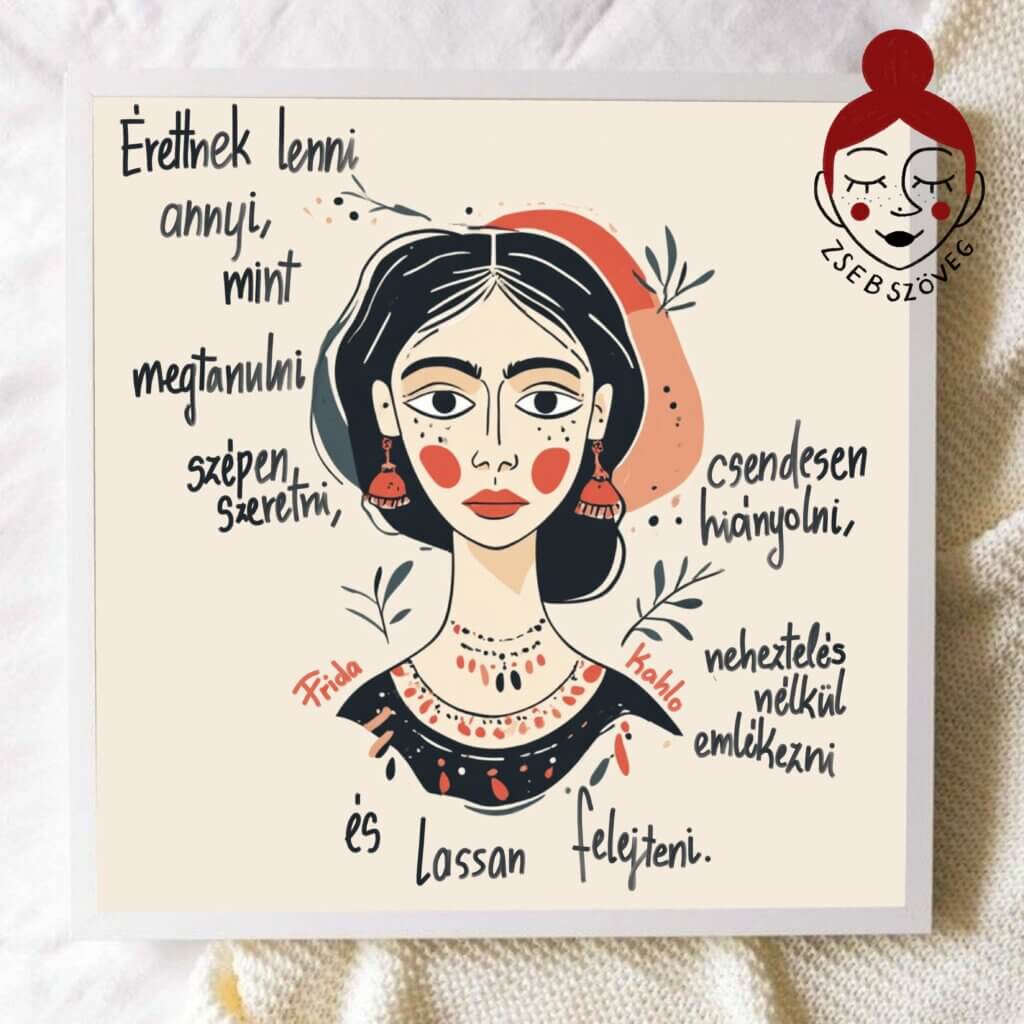 Érettnek lenni
annyi,
mint
megtanulni
szépen
szeretni,
csendesen
hiányolni,
neheztelés
nélkül
emlékezni
és lassan felejteni.
Frida Kahlo
ZSEBSZÖVEG